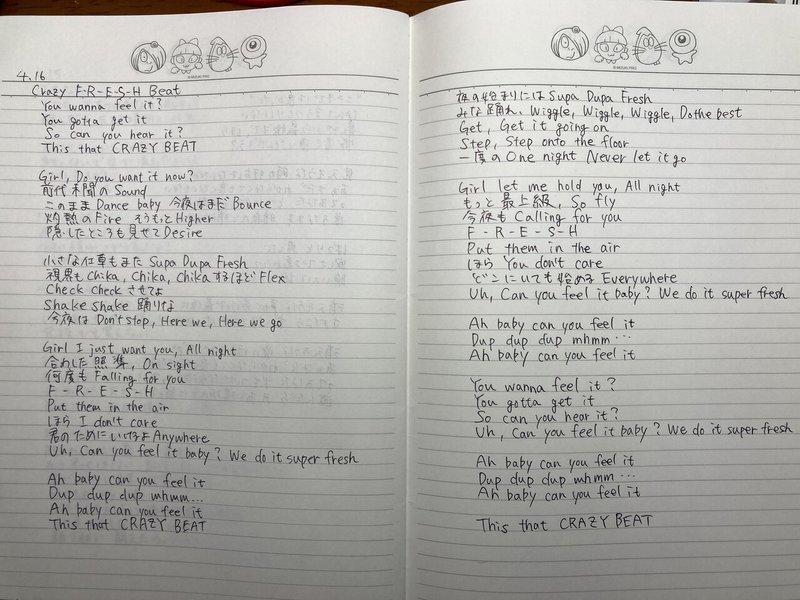 ©MIZUKI PRO
4.16
Crazy F-R-E-S-H Beat
You wanna feel it?
You gotta get it
So can you hear it?
This that CRAZY BEAT
Girl, Do you want it now?
前代未聞のSound
このまま Dance baby 今夜はまだ Bounce
灼熱のFire そうもっとHigher
隠したところも見せてDesire
小さな仕草もまた Supa Dupa Fresh
視界もChika, Chika, Chikaするほど Flex
Check Check させてよ
Shake shake 踊りな
今夜は Don't stop, Here we, Here we go
Girl I just want you, All night
合わした照準, On sight
何度も Falling for you
F - R - E - S - H
Put them in the air
ほら I don't care
君のためにいるよ Anywhere
Uh, Can you feel it baby? We do it super fresh
Ah baby can you feel it
Dup dup dup whmm...
Ah baby can you feel it
This that CRAZY BEAT
©MIZUKI PRO
夜の始まりには Supa Dupa Fresh
みな踊れ, Wiggle, Wiggle, Wiggle, Do the best
Get, Get it going on
Step, Step onto the floor
一度の One night Never let it go
Girl let me hold you, All night
もっと最上級, So fly
今夜も Calling for you
F - R - E - S - H
Put them in the air
ほら You don't care
どこにいても始める Everywhere
Uh, Can you feel it baby? We do it super fresh
Ah baby can you feel it
Dup dup dup mhmm...
Ah baby can you feel it
You wanna feel it?
You gotta get it
So can you hear it?
Uh, Can you feel it baby? We do it super fresh
Ah baby can you feel it
Dup dup dup whmm...
Ah baby can you feel it
This that CRAZY BEAT